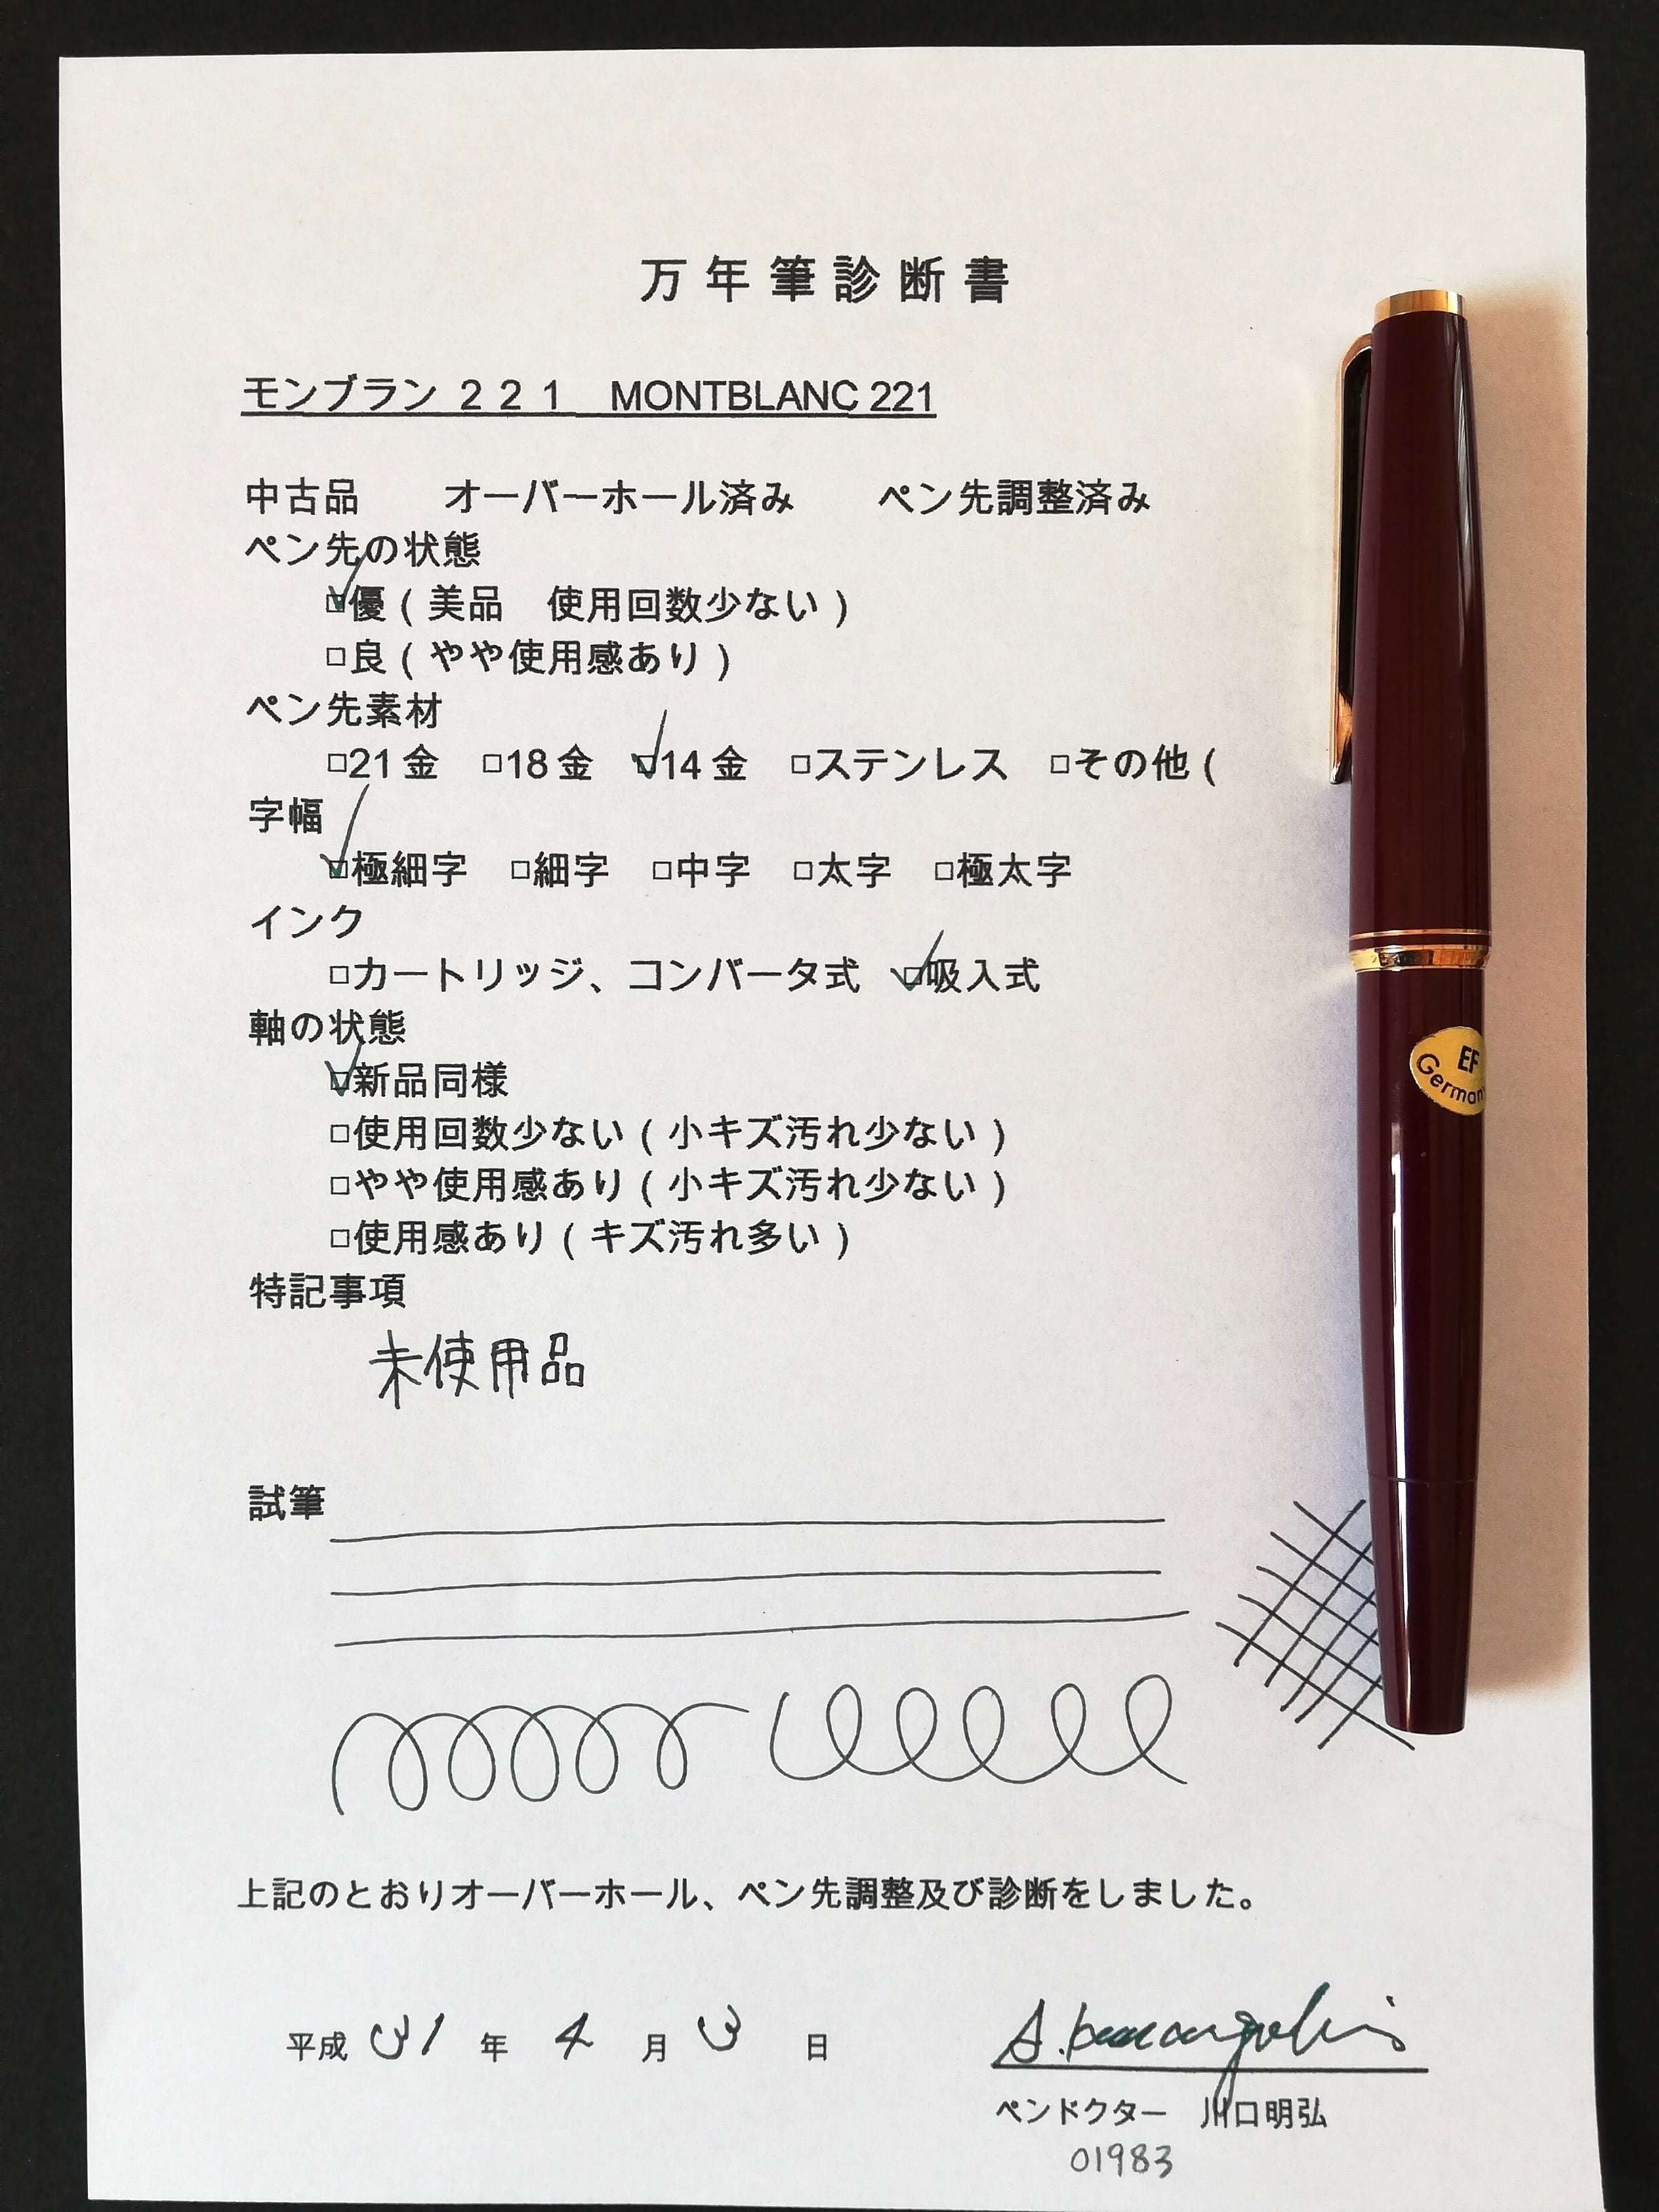 万年筆診断書
モンブラン ２２１　MONTBLANC 221
中古品　　オーバーホール済み　　ペン先調整済み
ペン先の状態
☑優（美品　使用回数少ない）
□良（やや使用感あり）
ペン先素材
□21金　□18金　☑14金　□ステンレス　□その他（
字幅
☑極細字　□細字　□中字　□太字　□極太字
インク
□カートリッジ、コンバータ式　☑吸入式
軸の状態
☑新品同様
□使用回数少ない（小キズ汚れ少ない）
□やや使用感あり（小キズ汚れ少ない）
□使用感あり（キズ汚れ多い）
特記事項
未使用品
試筆
上記のとおりオーバーホール、ペン先調整及び診断をしました。
平成 31 年 4 月 3 日
ペンドクター　川口明弘
01983
EF
Germany